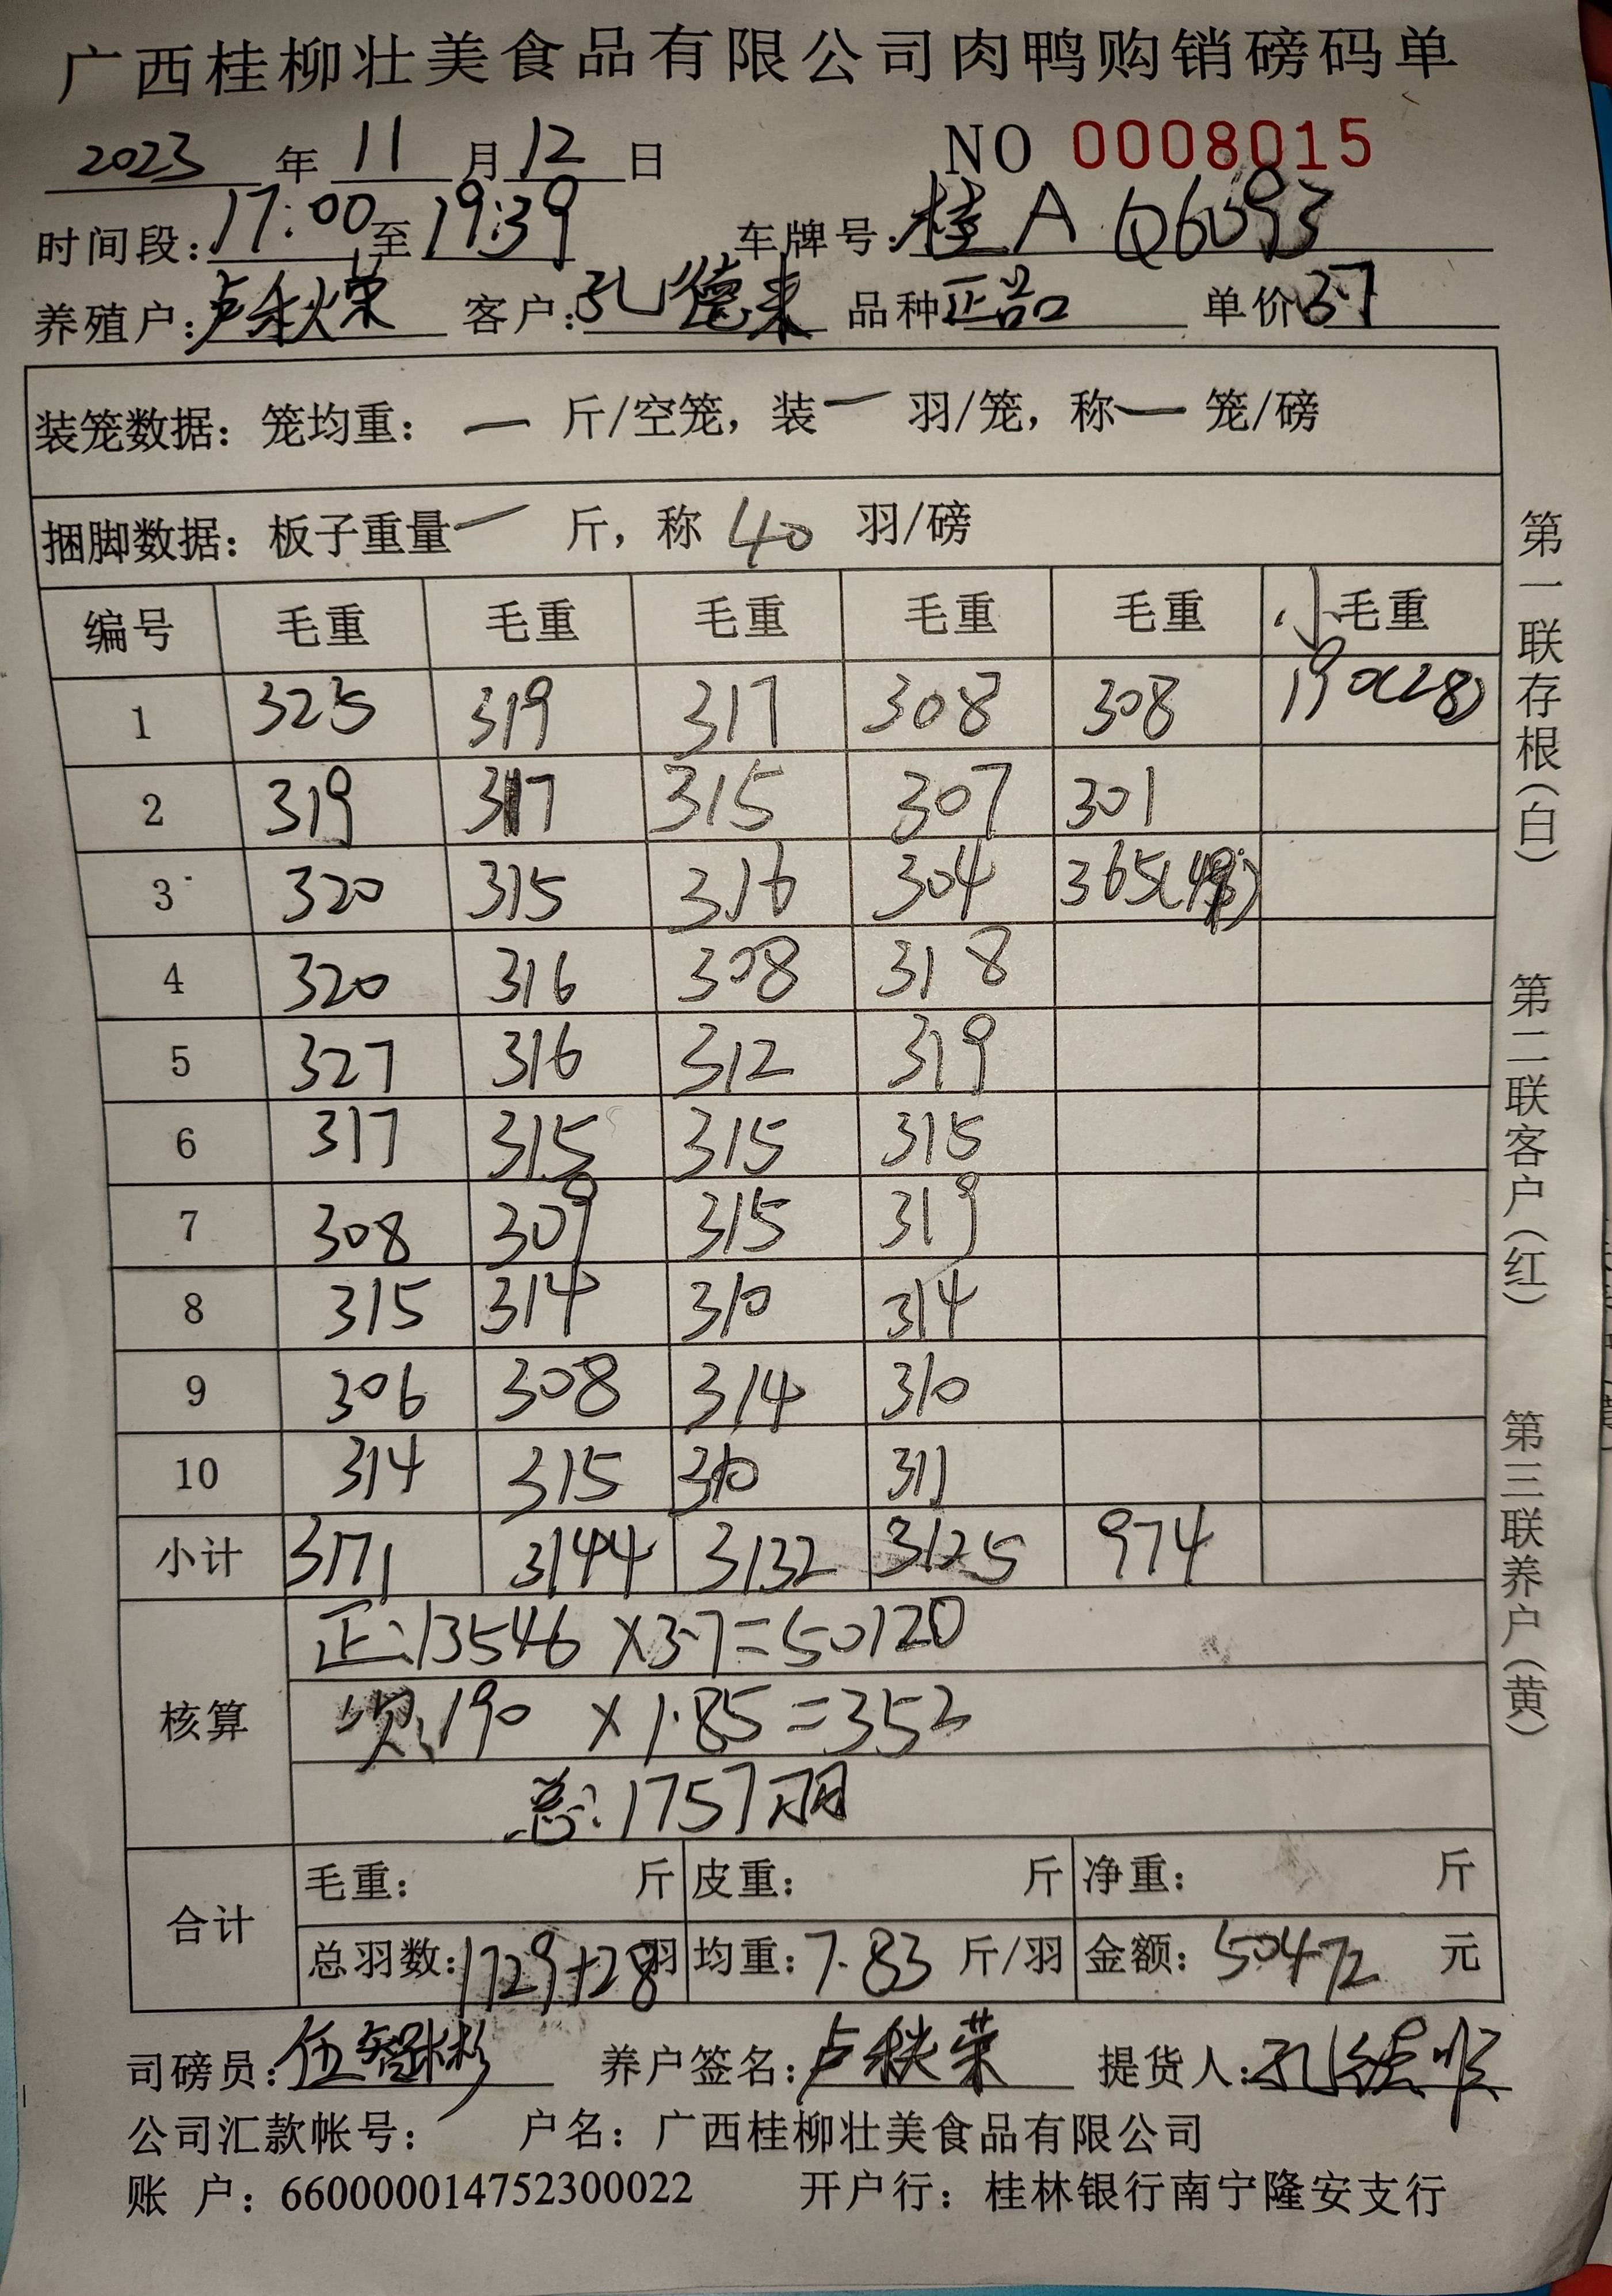 广西桂柳壮美食品有限公司肉鸭购销磅码单
2023 年 11 月 12 日 NO 0008015
时间段: 17:00 至 19:39 车牌号: 桂A Q6093
养殖户: 卢秋荣 客户: 孔德来 品种 正品 单价 3.7
装笼数据: 笼均重: 一 斤/空笼, 装 一 羽/笼, 称 一 笼/磅
捆脚数据: 板子重量 一 斤, 称 40 羽/磅
编号 毛重 毛重 毛重 毛重 毛重 小毛重
1 325 319 317 308 308 190(28)
2 319 317 315 307 301
3 320 315 316 304 365(49)
4 320 316 308 318
5 327 316 312 319
6 317 315 315 315
7 308 309 315 319
8 315 314 310 314
9 306 308 314 310
10 314 315 310 311
小计 3171 3144 3132 3125 974
核算 正:13546 ×3.7=50120
次:190 ×1.85=352
总:1757羽
合计 毛重: 斤 皮重: 斤 净重: 斤
总羽数: 1729+28 羽 均重: 7.83 斤/羽 金额: 50472 元
司磅员: 伍智彬 养户签名: 卢秋荣 提货人: 孔德
公司汇款帐号: 户名: 广西桂柳壮美食品有限公司
账 户: 660000014752300022 开户行: 桂林银行南宁隆安支行
第一联存根(白)
第二联客户(红)
第三联养户(黄)